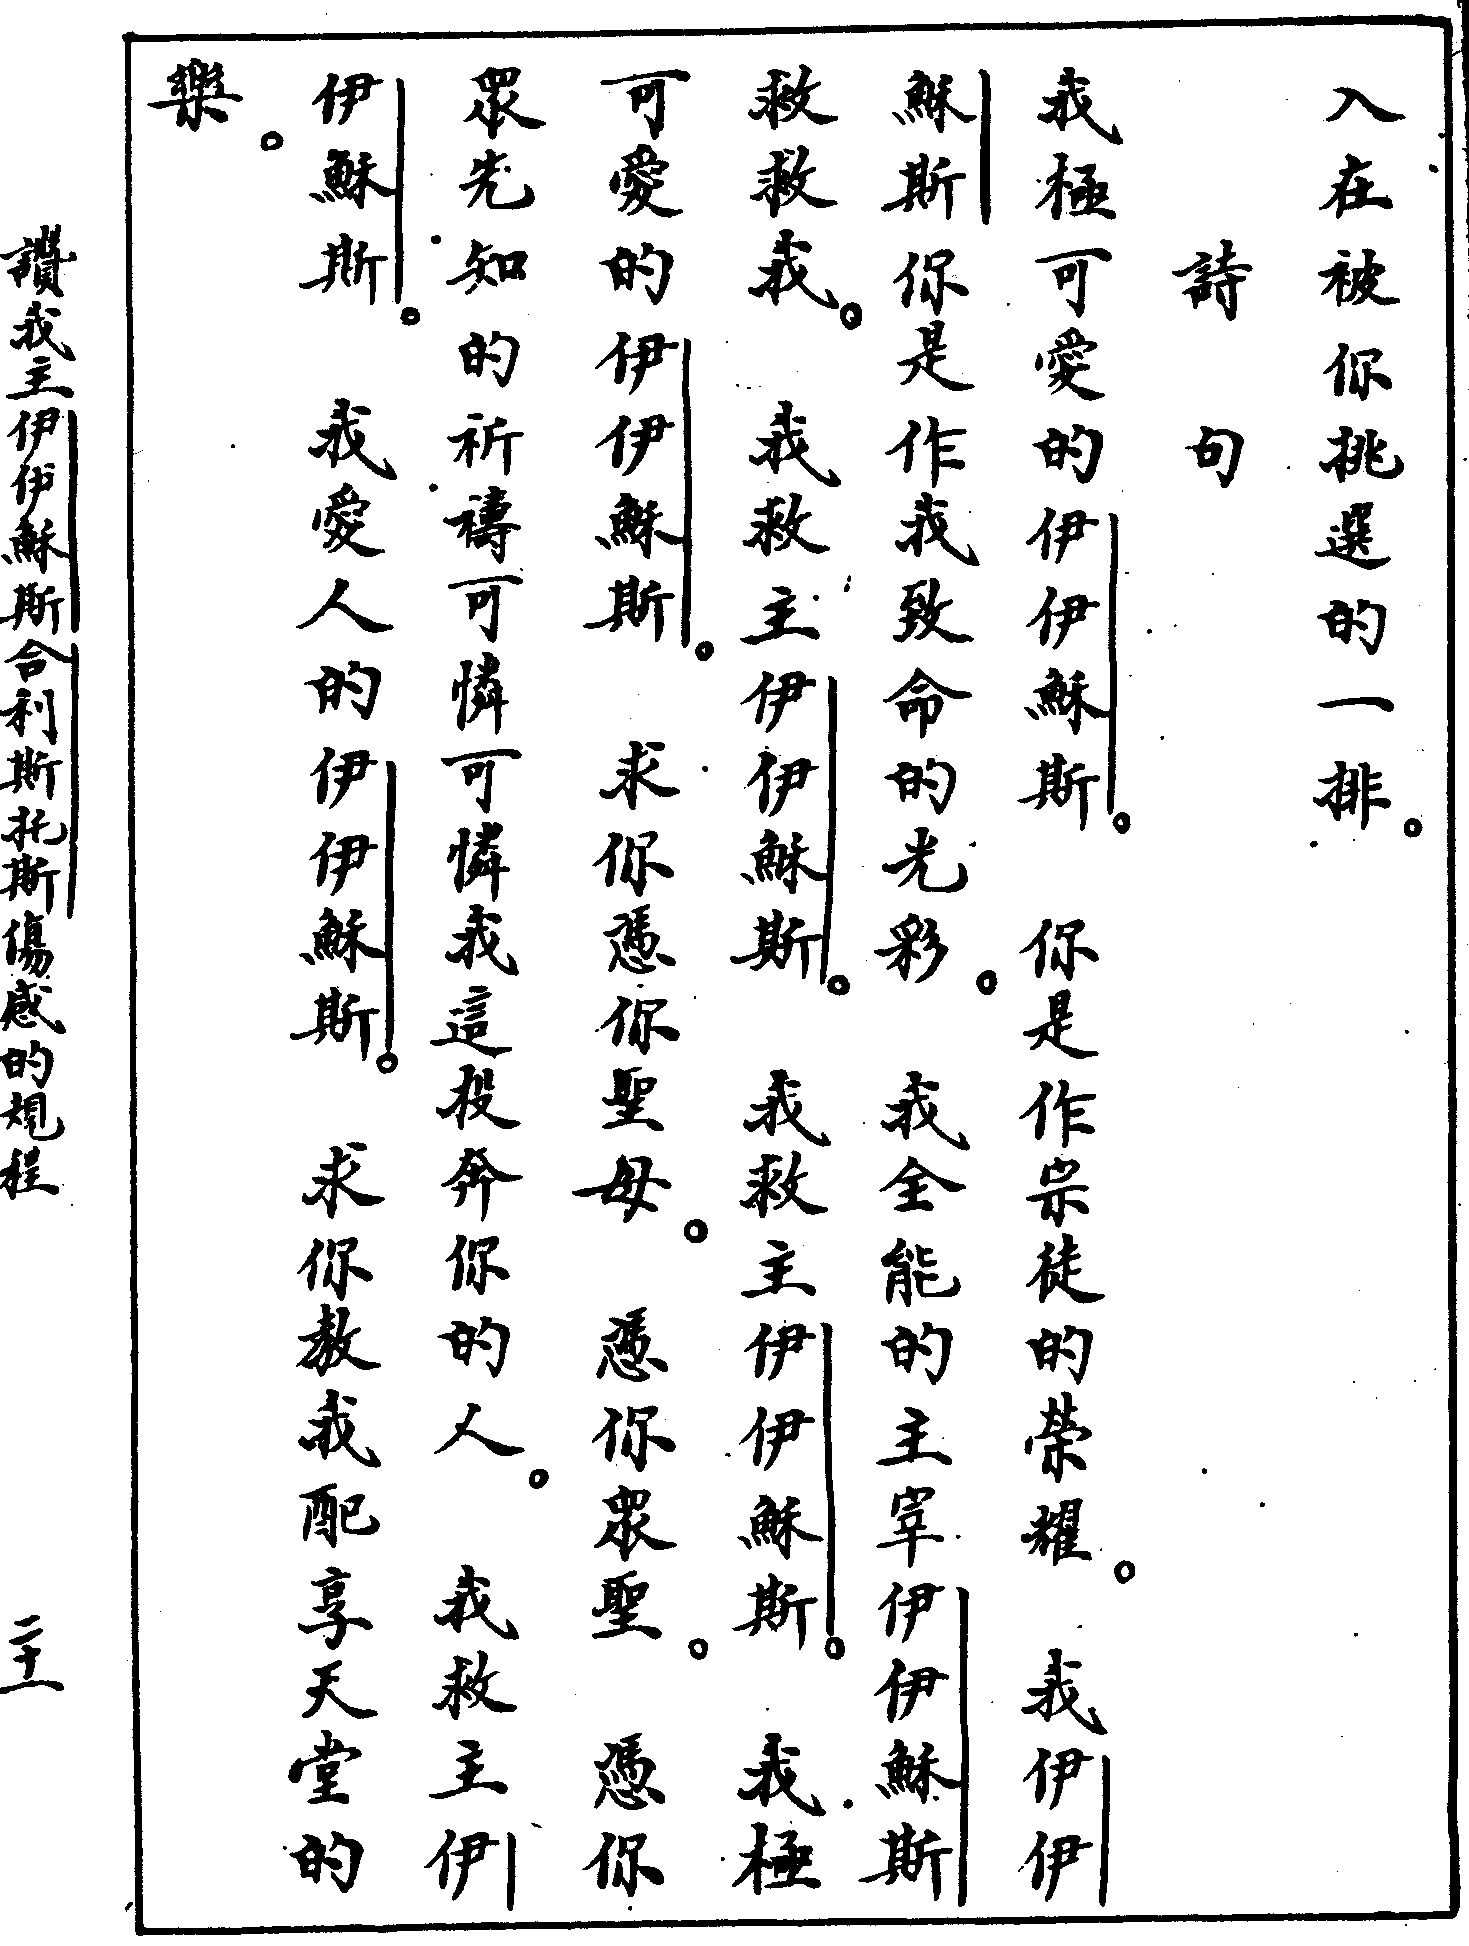 入在被你挑選的一排。
詩句
我極可愛的伊伊穌斯。你是作宗徒的榮耀。我伊伊
穌斯你是作我致命的光彩。我全能的主宰伊伊穌斯
救救我。我救主伊伊穌斯。我救主伊伊穌斯。我極
可愛的伊伊穌斯。求你憑你聖母。憑你眾聖。憑你
眾先知的祈禱可憐可憐我這投奔你的人。我救主伊
伊穌斯。我愛人的伊伊穌斯。求你教我配享天堂的
樂。
讚我主伊伊穌斯合利斯托斯傷感的規程
二十一